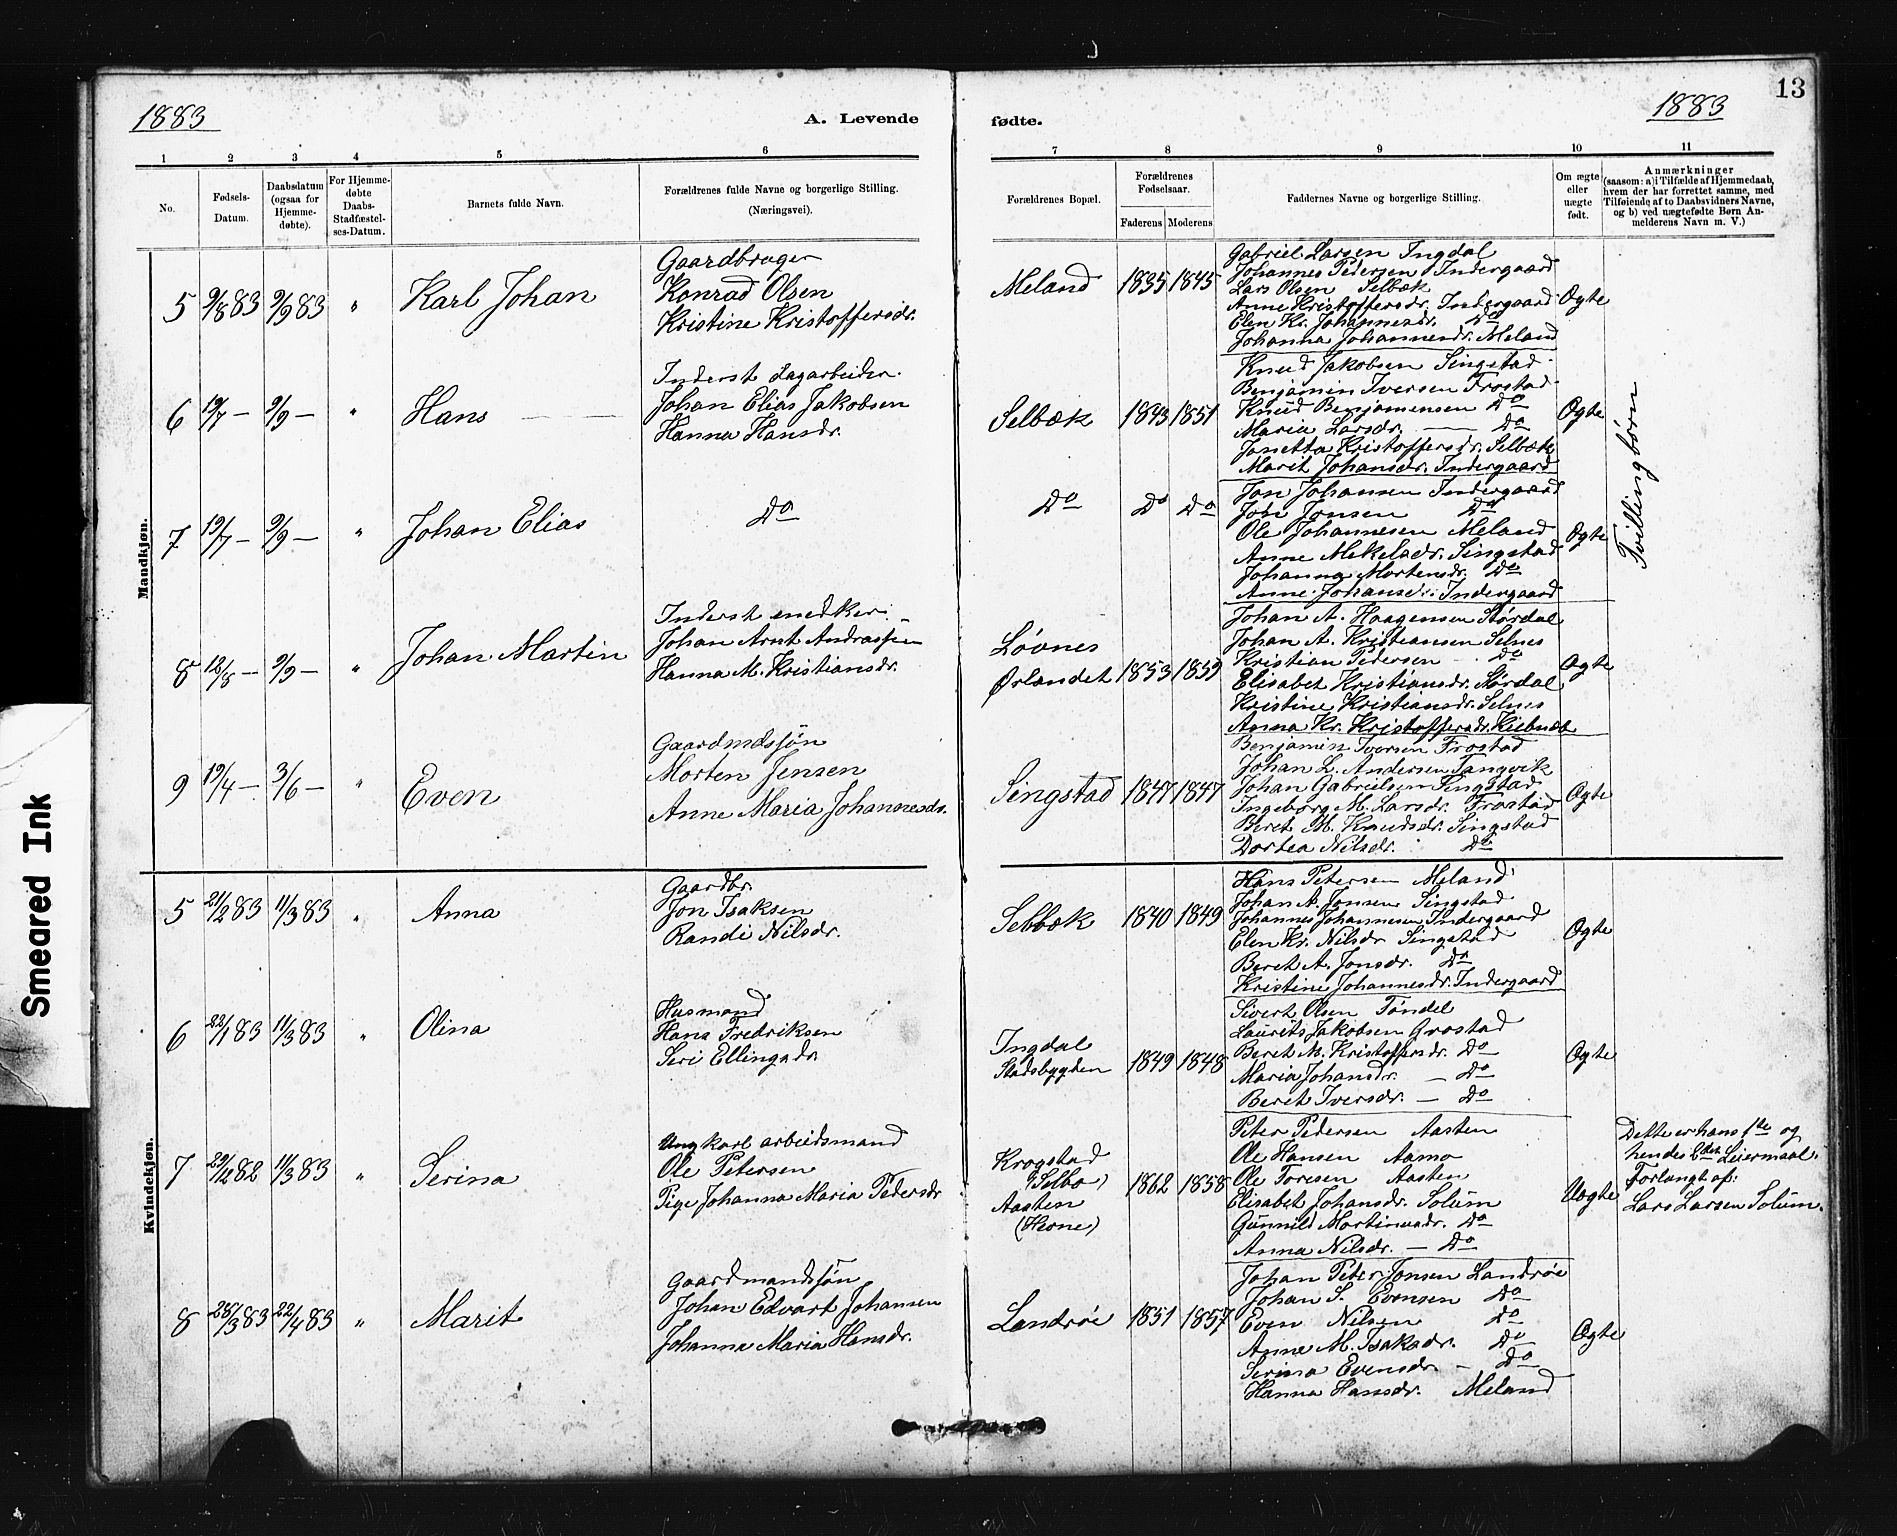 1883
A. Levende
fødte.
1883
13
1 2 3 4 5 6 7 8 9 10 11
No.
Fødsels-
Datum.
Daabsdatum
(ogsaa for
Hjemme-
døbte).
For Hjemme-
døbte
Daabs-
Stadfæstel-
ses-Datum.
Barnets fulde Navn.
Forældrenes fulde Navne og borgerlige Stilling.
(Næringsvei).
Forældrenes Bopæl.
Forældrenes
Fødselsaar.
Faderens Moderens
Faddernes Navne og borgerlige Stilling.
Om ægte
eller
uægte
født.
Anmærkninger
(saasom: a) i Tilfælde af Hjemmedaab,
hvem der har forrettet samme, med
Tilføiende af to Daabsvidners Navne,
og b) ved uægtefødte Børn An-
melderens Navn m. V.)
Mandkjøn.
5 9/8 83 9/9 83 " Karl Johan
Gaardbruger
Konrad Olsen
Kristine Kristoffersdr.
Meland 1835 1845
Gabriel Larsen Ingdal
Johannes Pedersen Indergaard
Lars Olsen Selbæk
Anne Kristoffersdr. Indergaard
Elen Kr. Johannesdr. Do
Johanna Johannesdr. Meland
Ogte
6 19/7 — 9/9 — " Hans
Inderst Dagarbeider.
Johan Elias Jakobsen
Hanna Hansdr.
Selbæk 1843 1851
Knud Jakobsen Singstad
Benjamin Iversen Frostad
Knud Benjaminsen Do
Maria Larsdr. — Do
Janetta Kristoffersdr. Selbæk
Marit Johansdr. Indergaard
Ogte
Tvillingbørn
7 19/7 — 9/9 — " Johan Elias
Do
Do Do Do
Jon Johansen Indergaard
John Jonsen Do
Ole Johannesen Meland
Anne Mekelsdr. Singstad
Johanna Mortensdr. Do
Anne Johansdr. Indergaard
Ogte
8 12/8 — 9/9 — " Johan Martin
Inderst snedker
Johan Arnt Andrassen
Hanna M. Kristiansdr.
Løvnes
Ørlandet 1853 1859
Johan A. Haagensen Størdal
Johan A. Kristiansen Selnes
Kristian Pedersen Do
Elisabet Kristiansdr. Størdal
Kristine Kristiansdr. Selnes
Anna Kr. Kristoffersdr.
Ogte
9 19/4 — 3/6 — " Even
Gaardmdssøn
Morten Jensen
Anne Maria Johannesdr.
Singstad 1847 1847
Benjamin Iversen Frostad
Johan L. Andersen Tangvik
Johan Gabrielsen Singstad
Ingeborg M. Larsdr. Frostad
Beret M. Knudsdr. Singstad
Dortea Nilsdr. Do
Ogte
Kvindekjøn.
5 21/2 83 11/3 83 " Anna
Gaardbr.
Jon Isaksen
Randi Nilsdr.
Selbæk 1840 1849
Hans Petersen Meland
Johan A. Jonsen Singstad
Johannes Johannesen Indergaard
Elen Kr. Nilsdr Singstad
Beret A. Jonsdr. Do
Kristine Johannesdr. Indergaard
Ogte
6 22/1 83 11/3 83 " Olina
Husmand
Hans Fredriksen
Seri Ellingsdr.
Ingdal
Stadsbygden 1849 1848
Sivert Olsen Tøndel
Laurits Jakobsen Grostad
Beret M. Kristoffersdr. Do
Maria Johansdr. — Do
Beret Iversdr. — Do
Ogte
7 29/12 82 11/3 83 " Serina
Ungkarl arbeidsmand
Ole Petersen
Pige Johanna Maria Pedersdr
Krogstad
(Selbo)
Aasten
(Hevne) 1862 1858
Peter Pedersen Aasten
Ole Hansen Aamo
Ole Toresen Aasten
Elisabet Johansdr. Solum
Gunnild Martinusdr. Do
Anna Nilsdr. — Do
Uegte
Dette er hans 1ste og
hendes 2det Leiermaal.
Forlangt af:
Lars Larsen Solum.
8 28/3 83 22/4 83 " Marit
Gaardmandssøn
Johan Edvart Johansen
Johanna Maria Hansdr.
Landrøi 1851 1857
Johan Peter Jonsen Landrøi
Johan S. Evensen Do
Even Nilsen Do
Anne M. Isaksdr. Do
Serina Evensdr. — Do
Hanna Hansdr. Meland
Ogte
Smeared Ink